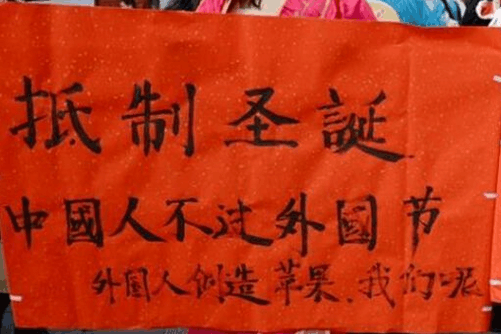 抵制圣誕
中國人不过外國节
外国人创造苹果、我们呢